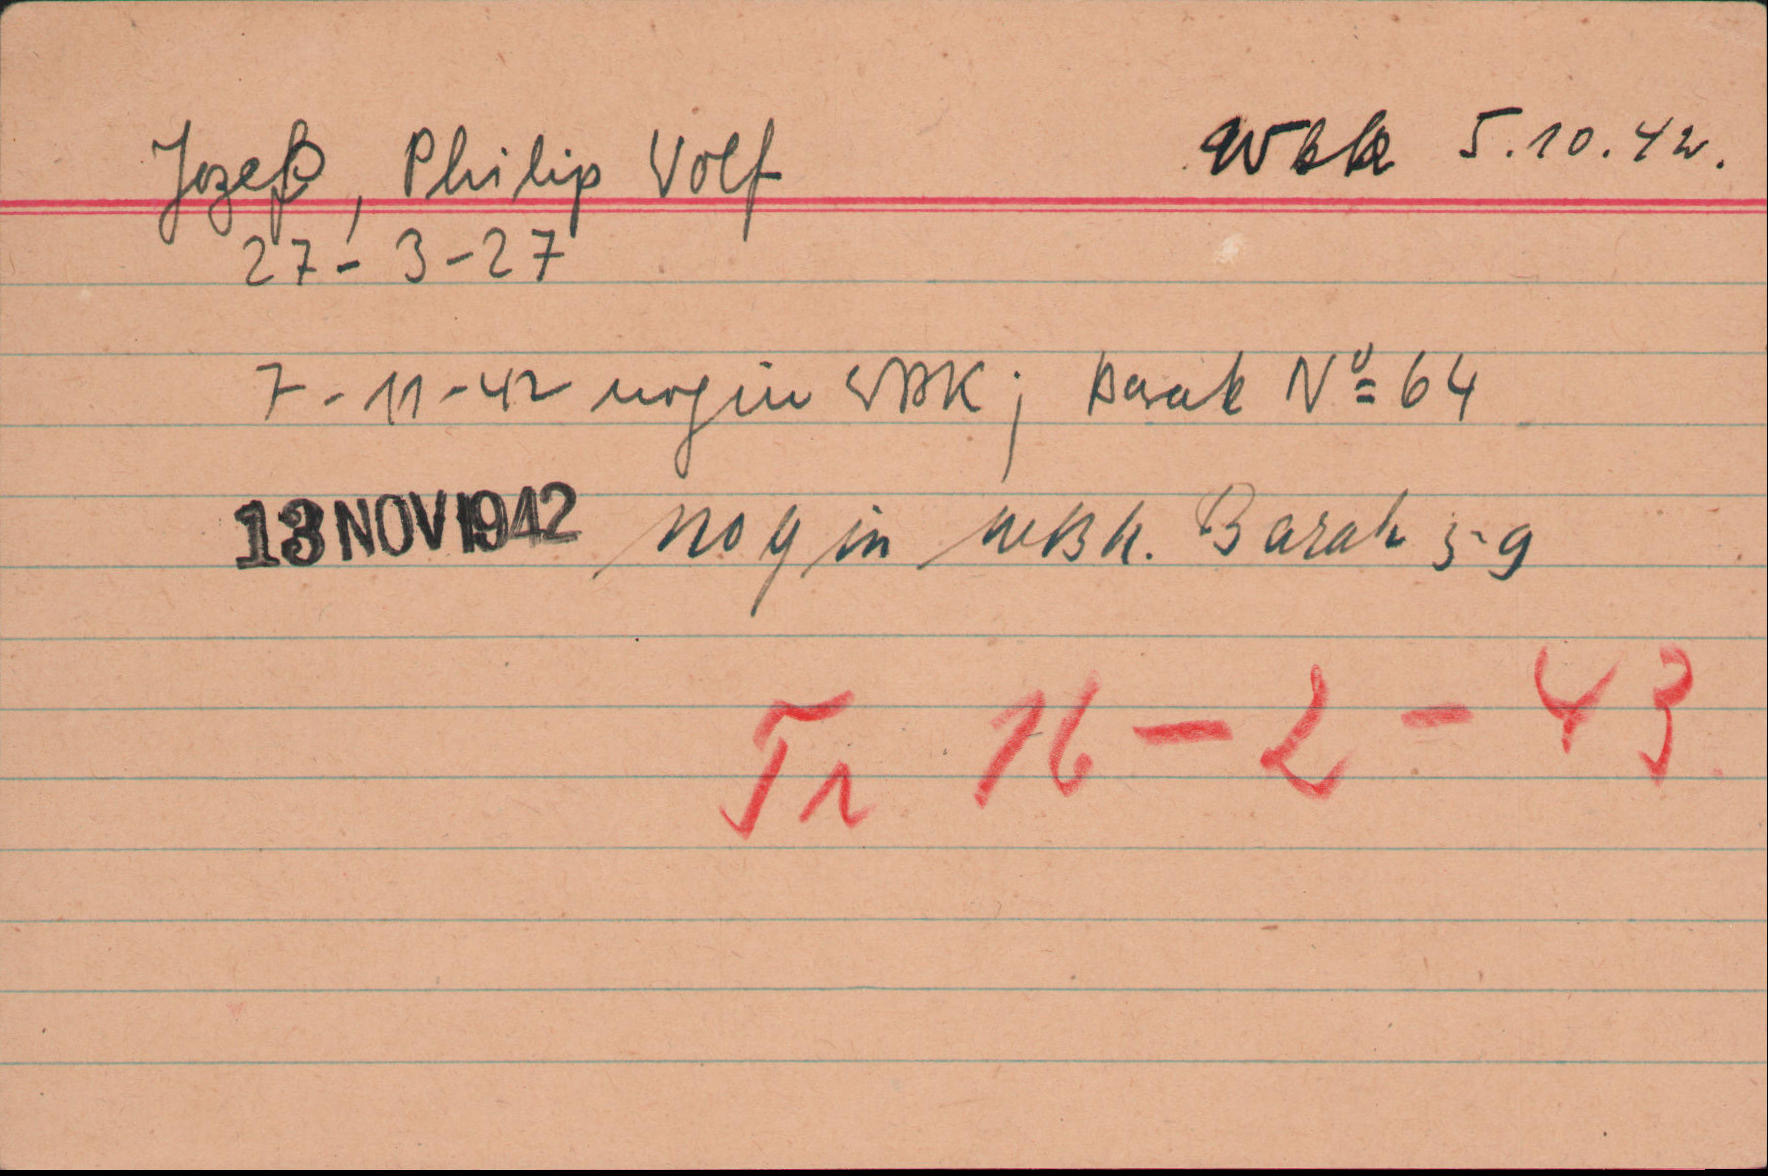 Jozeß, Philip Wolf Wbk 5.10.42.
27-3-27
7-11-42 nog in WBK; barak Nº 64
13 NOV 1942 nog in WBk. Barak 59
Tr 16-2-43